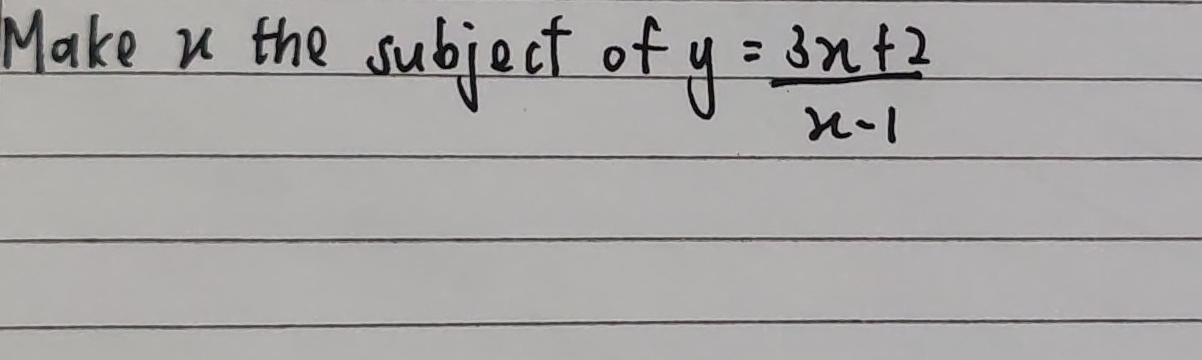 Make x the subject of y = 3x+2
x-1